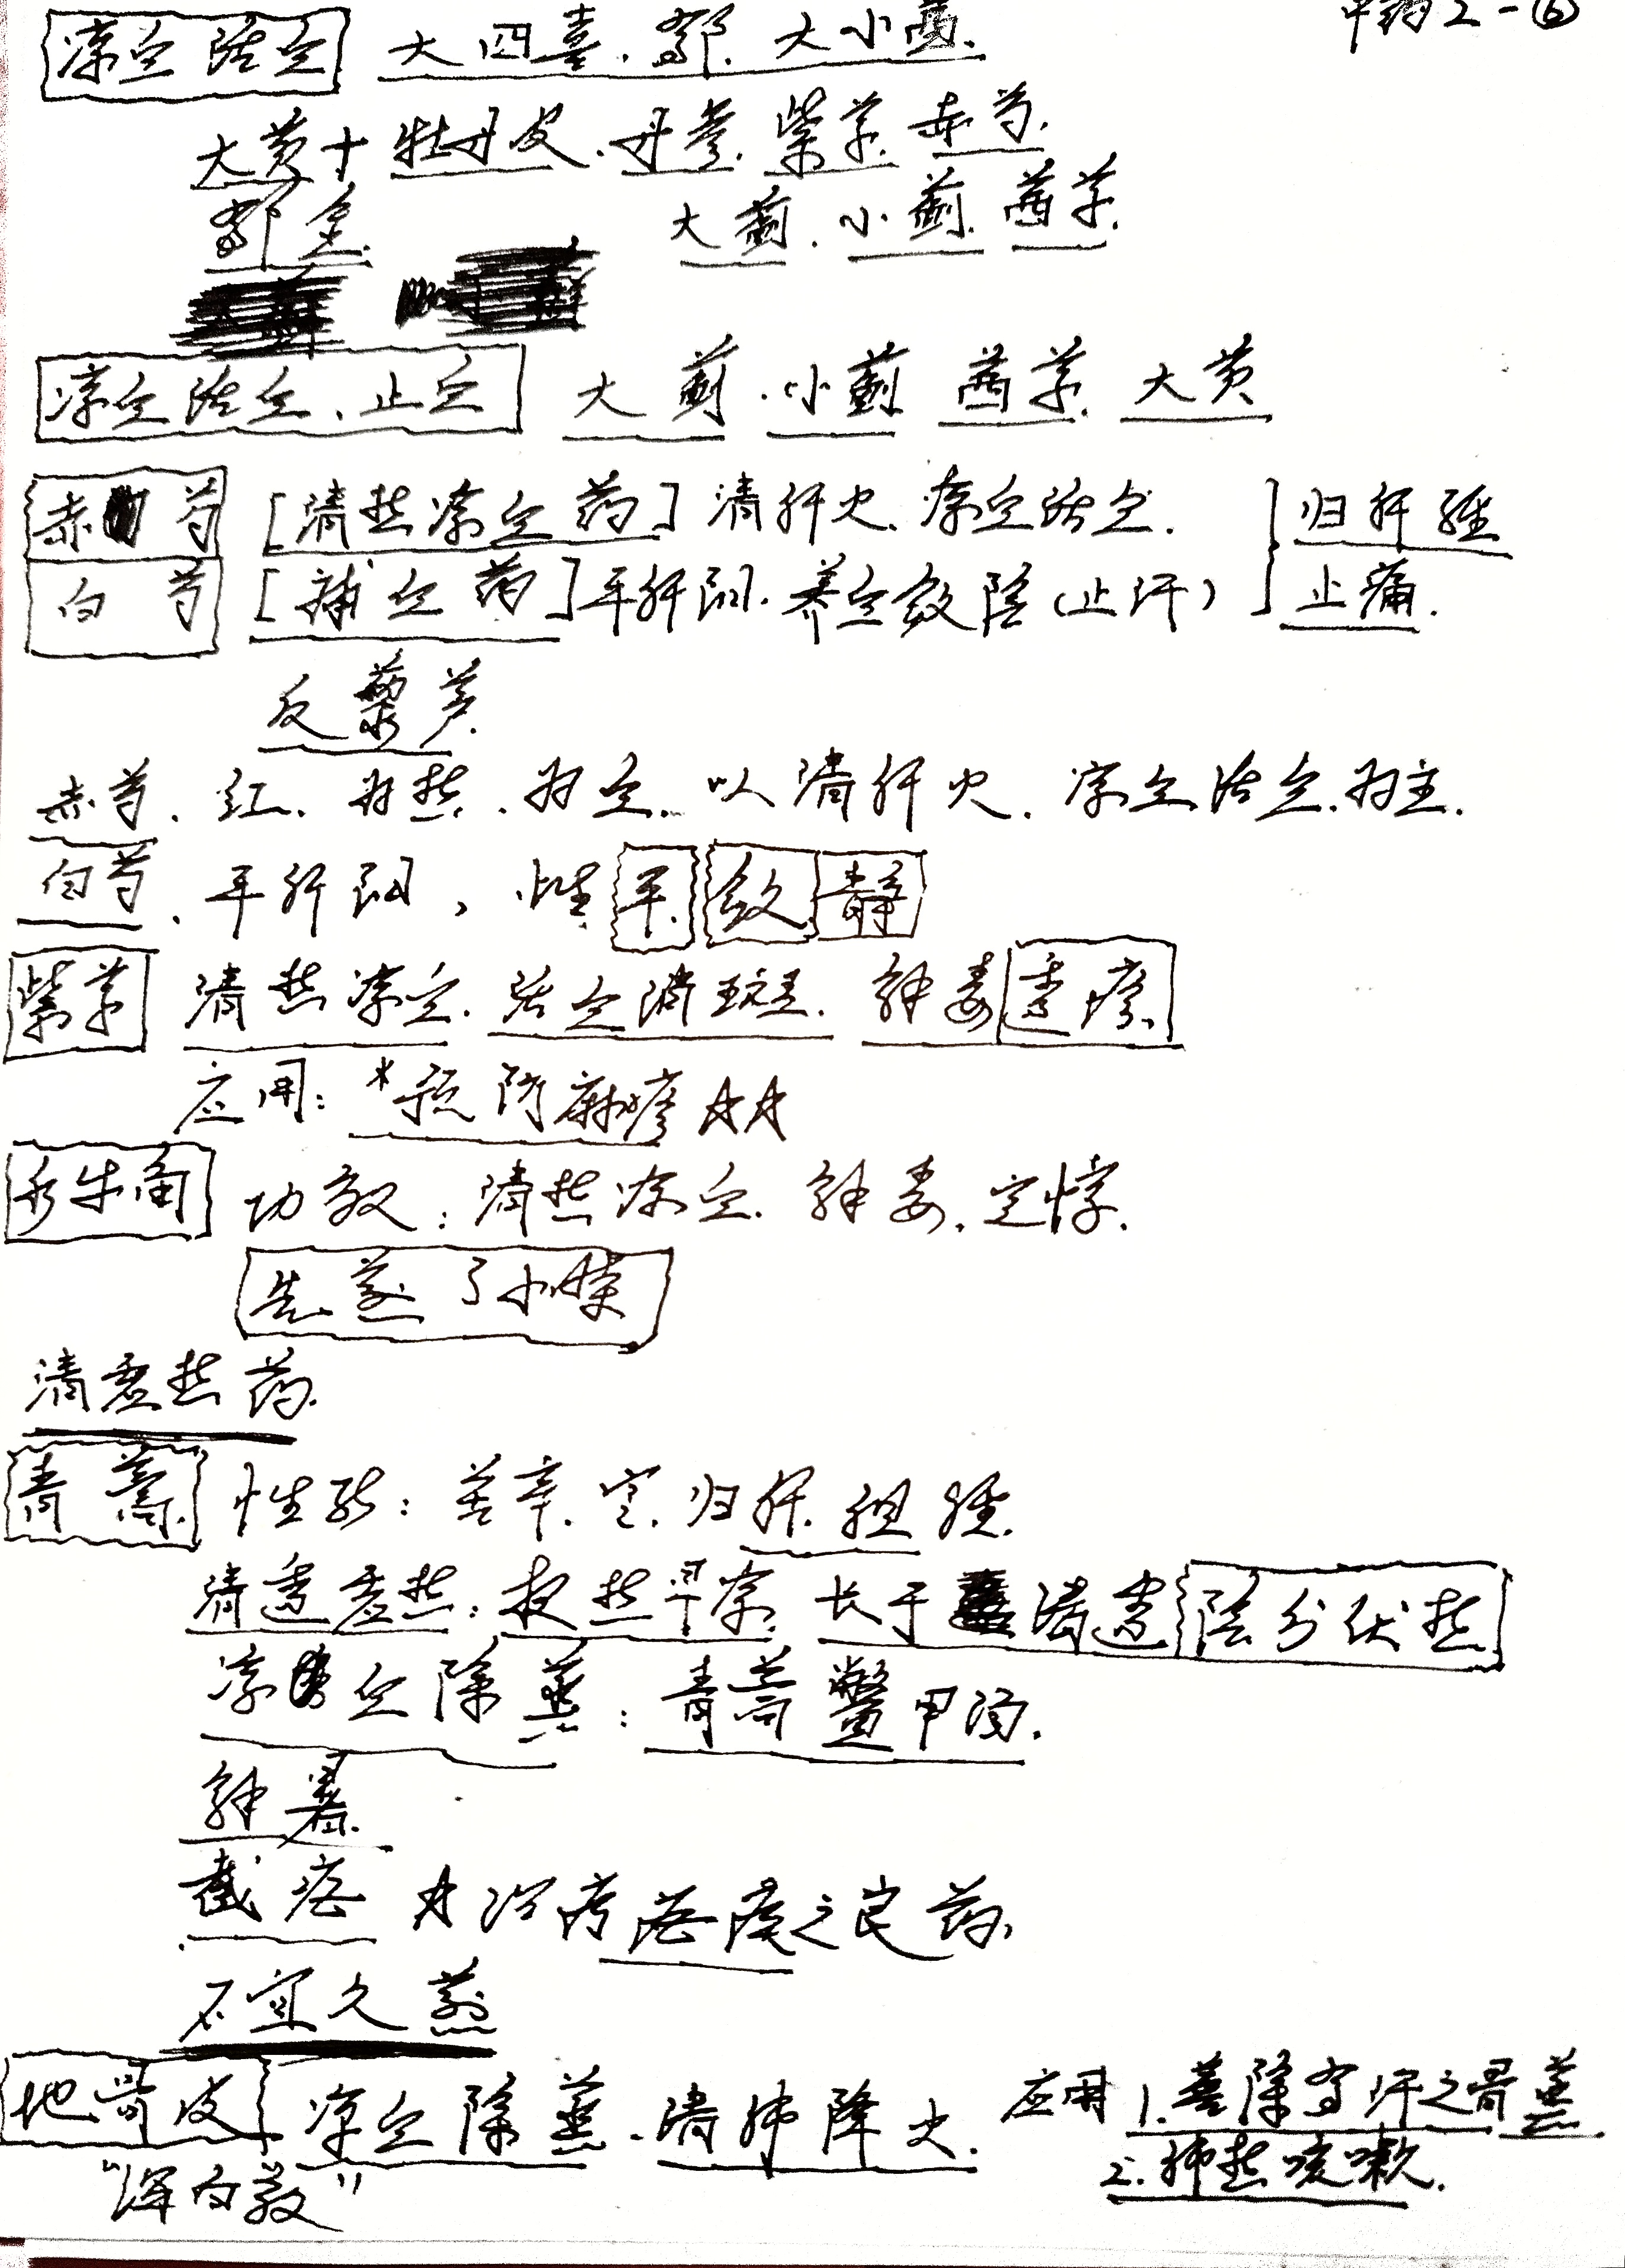 中药2-⑥
凉血活血 大四喜.郁.大小茜.
大黄+牡丹皮.丹参.紫草.赤芍.
郁金. 大蓟.小蓟.茜草.
凉血活血、止血 大蓟.小蓟 茜草.大黄
赤芍 [清热凉血药]清肝火.凉血活血. 归肝经
白芍 [补血药]平肝阳.养血敛阴(止汗) 止痛.
反藜芦.
赤芍.红.为热.为血.以清肝火.凉血活血.为主.
白芍.平肝阳,性平.敛静
紫草 清热凉血.活血消斑.解毒透疹.
应用:*预防麻疹☆☆
水牛角 功效:清热凉血.解毒.定惊.
先煎3小时
清虚热药.
青蒿 性能:苦辛.寒.归肝.胆经.
清透虚热:夜热早凉.长于清透阴分伏热
凉血除蒸:青蒿鳖甲汤.
解暑.
截疟 ☆治疗疟疾之良药.
不宜久煎
地骨皮 凉血除蒸.清肺降火. 应用1.善除有汗之骨蒸
2.肺热咳嗽.
"泻白散"